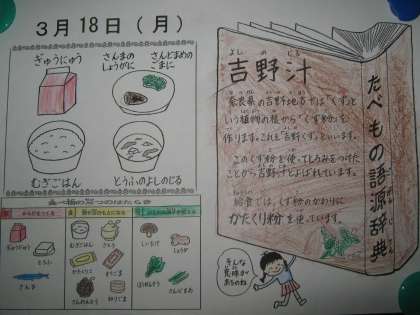 3月18日(月)
ぎゅうにゅう
さんまの
しょうがに
さんどまめの
ごまに
むぎごはん
とうふのよしのじる
たべもの語源辞典
よしのじる
吉野汁
奈良県の吉野地方では「くず」と
いう植物の根から「くず粉」を
作ります。これを「吉野くず」といいます。
このくず粉を使ってとろみをつけた
ことから吉野汁とよばれています。
給食では、くず粉のかわりに
かたくり粉を使っています。
そんな
意味が
あるのね
ぎゅうにゅう
とうふ
さんま
むぎごはん
さとう
かたくりこ
さんどまめ
しょうが